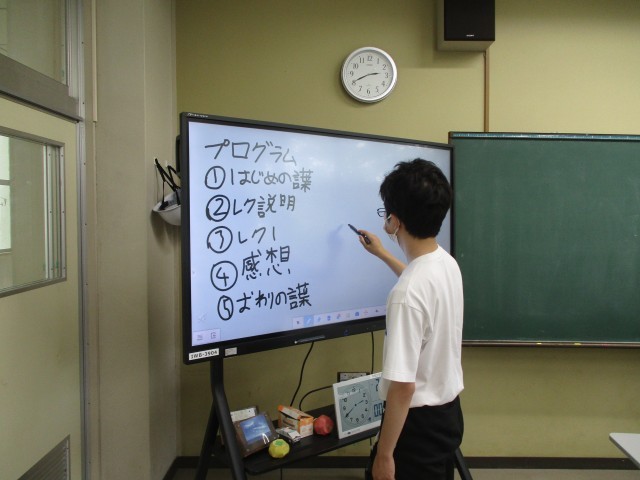 プログラム
①はじめの葉
②レク説明
③レク1
④感想
⑤おわりの葉
IWB-3904